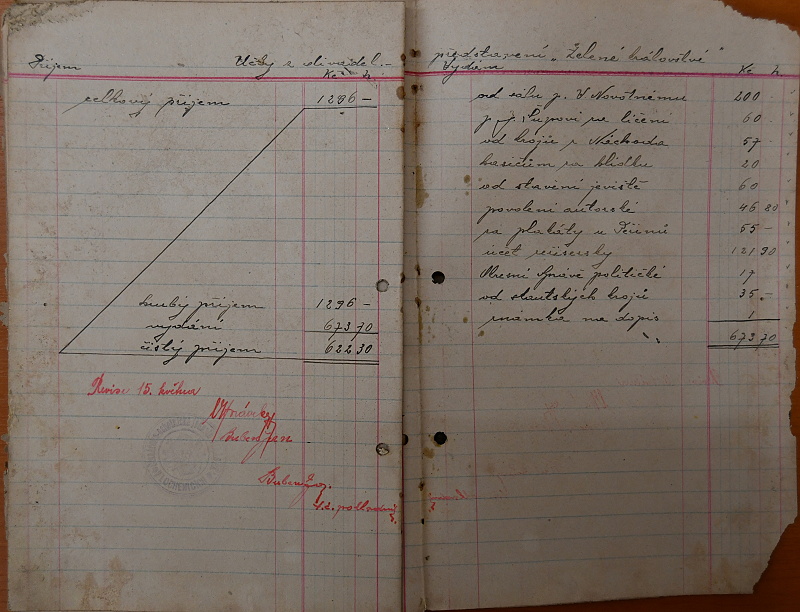 Příjem Účty z divadel.
Kč h
celkový příjem 1296 -
hrubý příjem 1296 -
vydání 673 70
čistý příjem 622 30
Revise 15. května
představení „Zelené království"
Vydání Kč h
od sálu p. V Novotnému 200
p. J. Šupovi ze líčení 60
od krojů z Náchoda 57 -
hasičům za hlídku 20
od stavení jeviště 60
povolení autorské 46 80
za plakáty u 55 -
účet režisérský 121 90
Okresní správě politické 17
od skautských krojů 35. -
známka na dopis 1
673 70